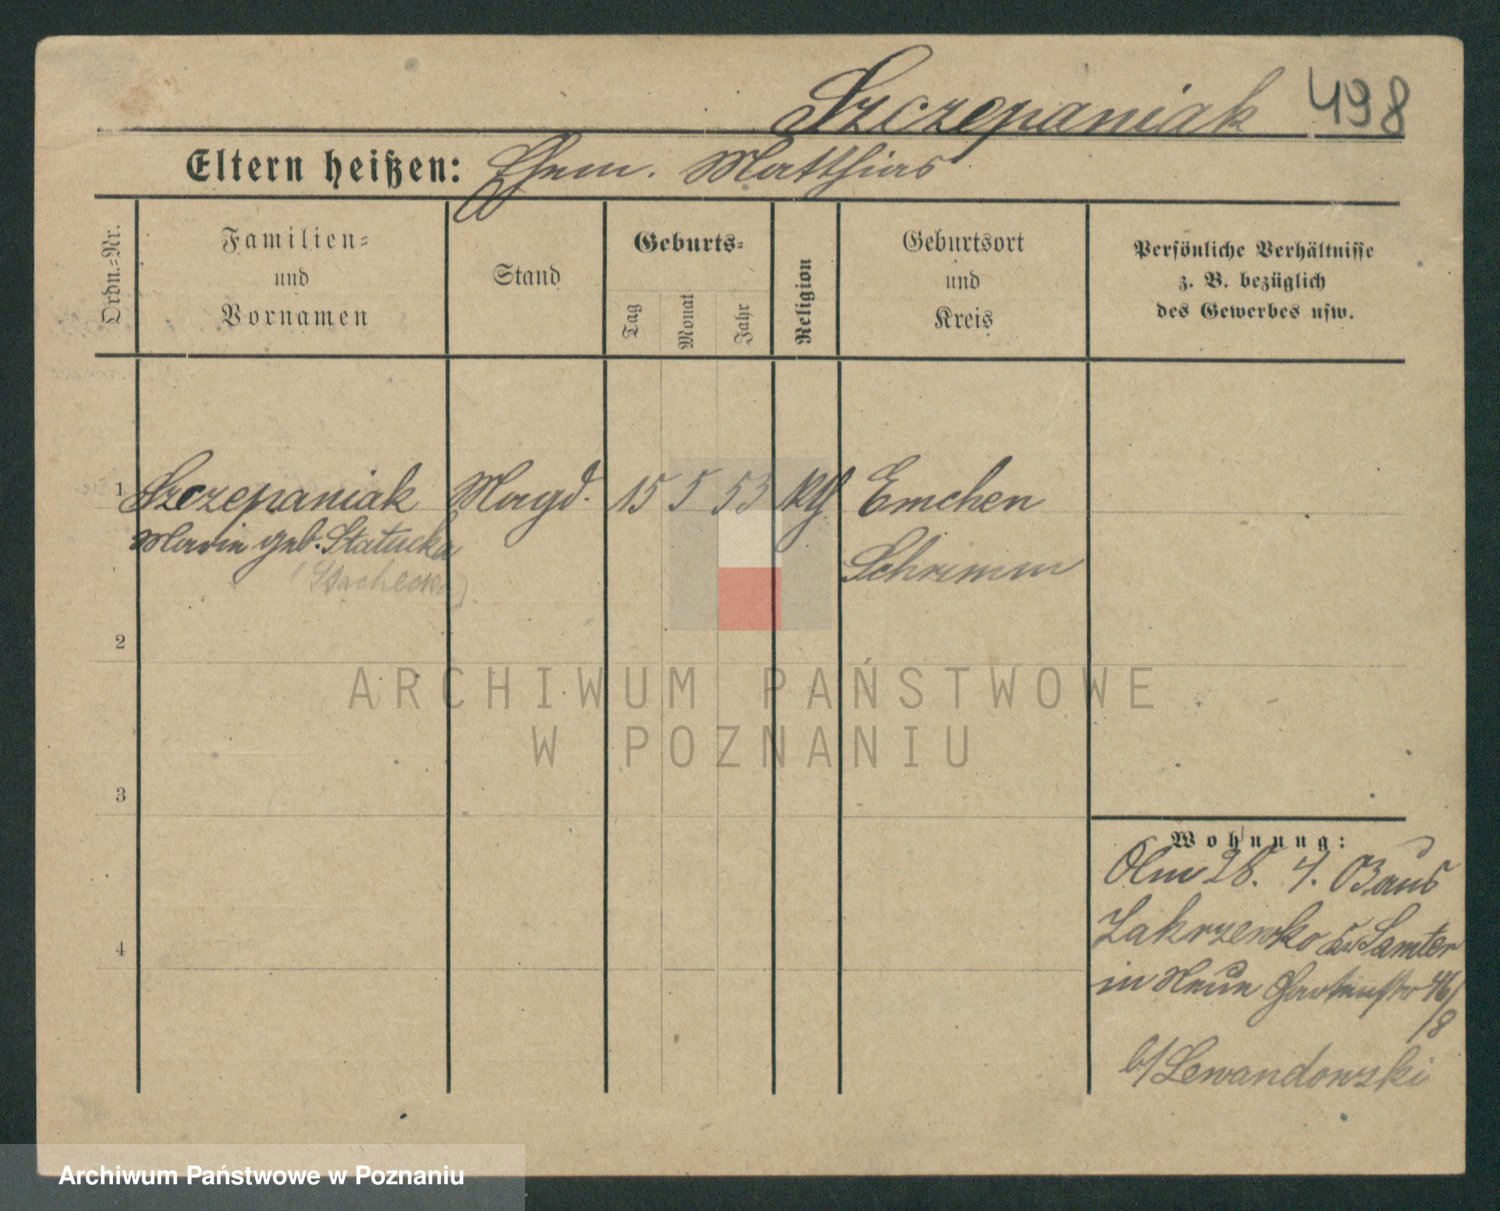 Szczepaniak 498
Eltern heißen: Ehem. Matthias
Ordn.-Nr.
Familien-
und
Vornamen
Stand
Geburts-
Tag
Monat
Jahr
Religion
Geburtsort
und
Kreis
Persönliche Verhältnisse
z. B. bezüglich
des Gewerbes usw.
1 Szczepaniak Magd. 15 5 53 Emchen
Marie geb. Statucka Schrimm
2
ARCHIWUM PAŃSTWOWE
W POZNANIU
3
Wohnung:
28. 4. 03 aus
Zakrzewko Samter
in Neue Gartenstr 46/
/8
b/Lewandowski
4
Archiwum Państwowe w Poznaniu